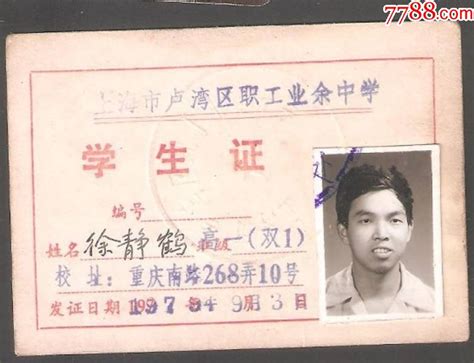 7788.com
上海市卢湾区职工业余中学
学生证
编号
姓名 徐静鹤 高一(双1)
校址:重庆南路268弄10号
发证日期 9月3日